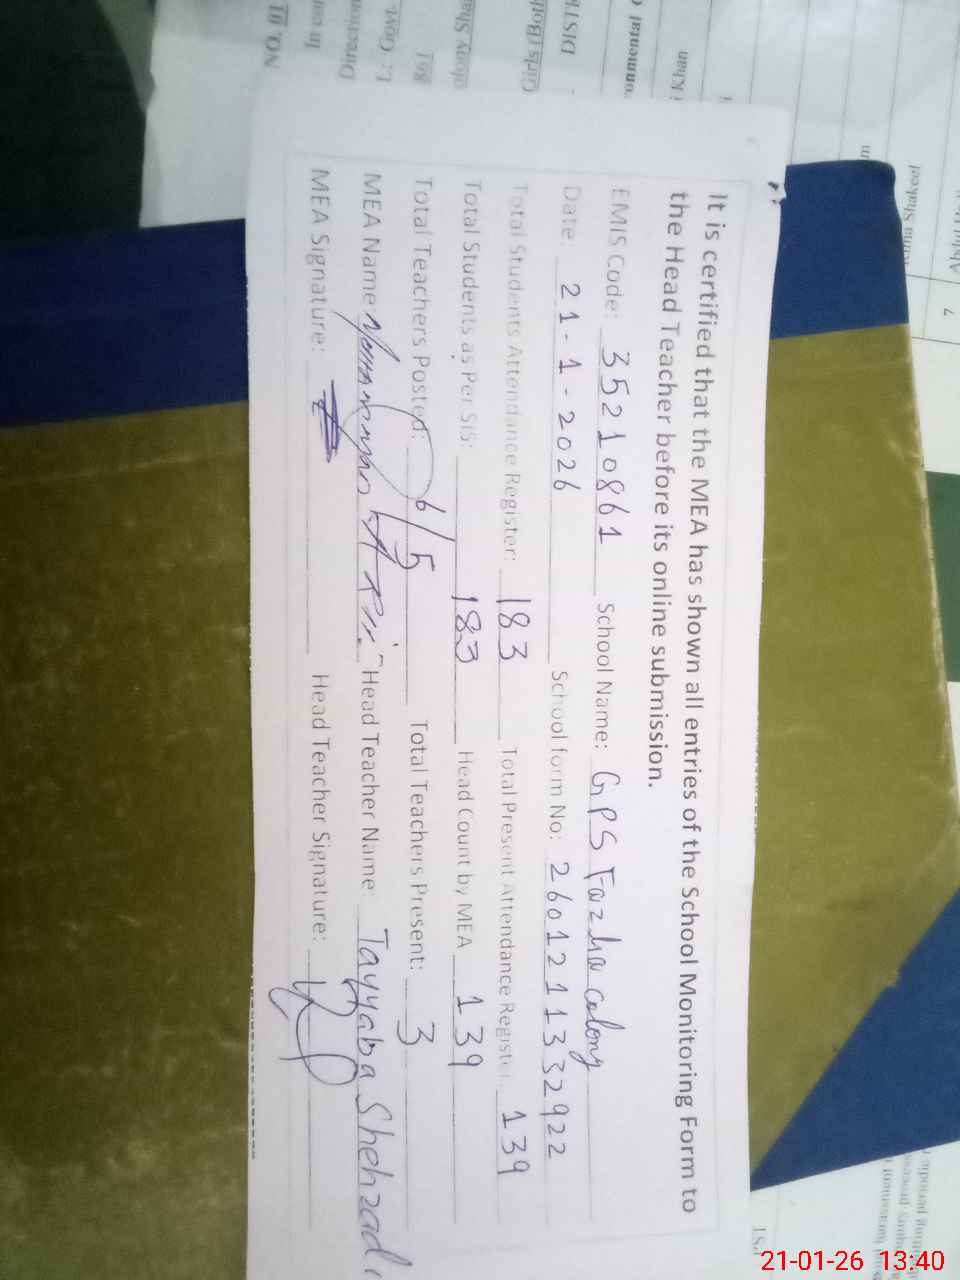 It is certified that the MEA has shown all entries of the School Monitoring Form to
the Head Teacher before its online submission.
EMIS Code: 35210861 School Name: GPS Fazlia colony
Date: 21-1-2026 School form No: 2601211332922
Total Students Attendance Register: 183 Total Present Attendance Register 139
Total Students as Per SIS: 183 Head Count by MEA 139
Total Teachers Posted: 6/5 Total Teachers Present: 3
MEA Name Head Teacher Name: Tayyaba Shehzadi
MEA Signature: Head Teacher Signature:
21-01-26 13:40